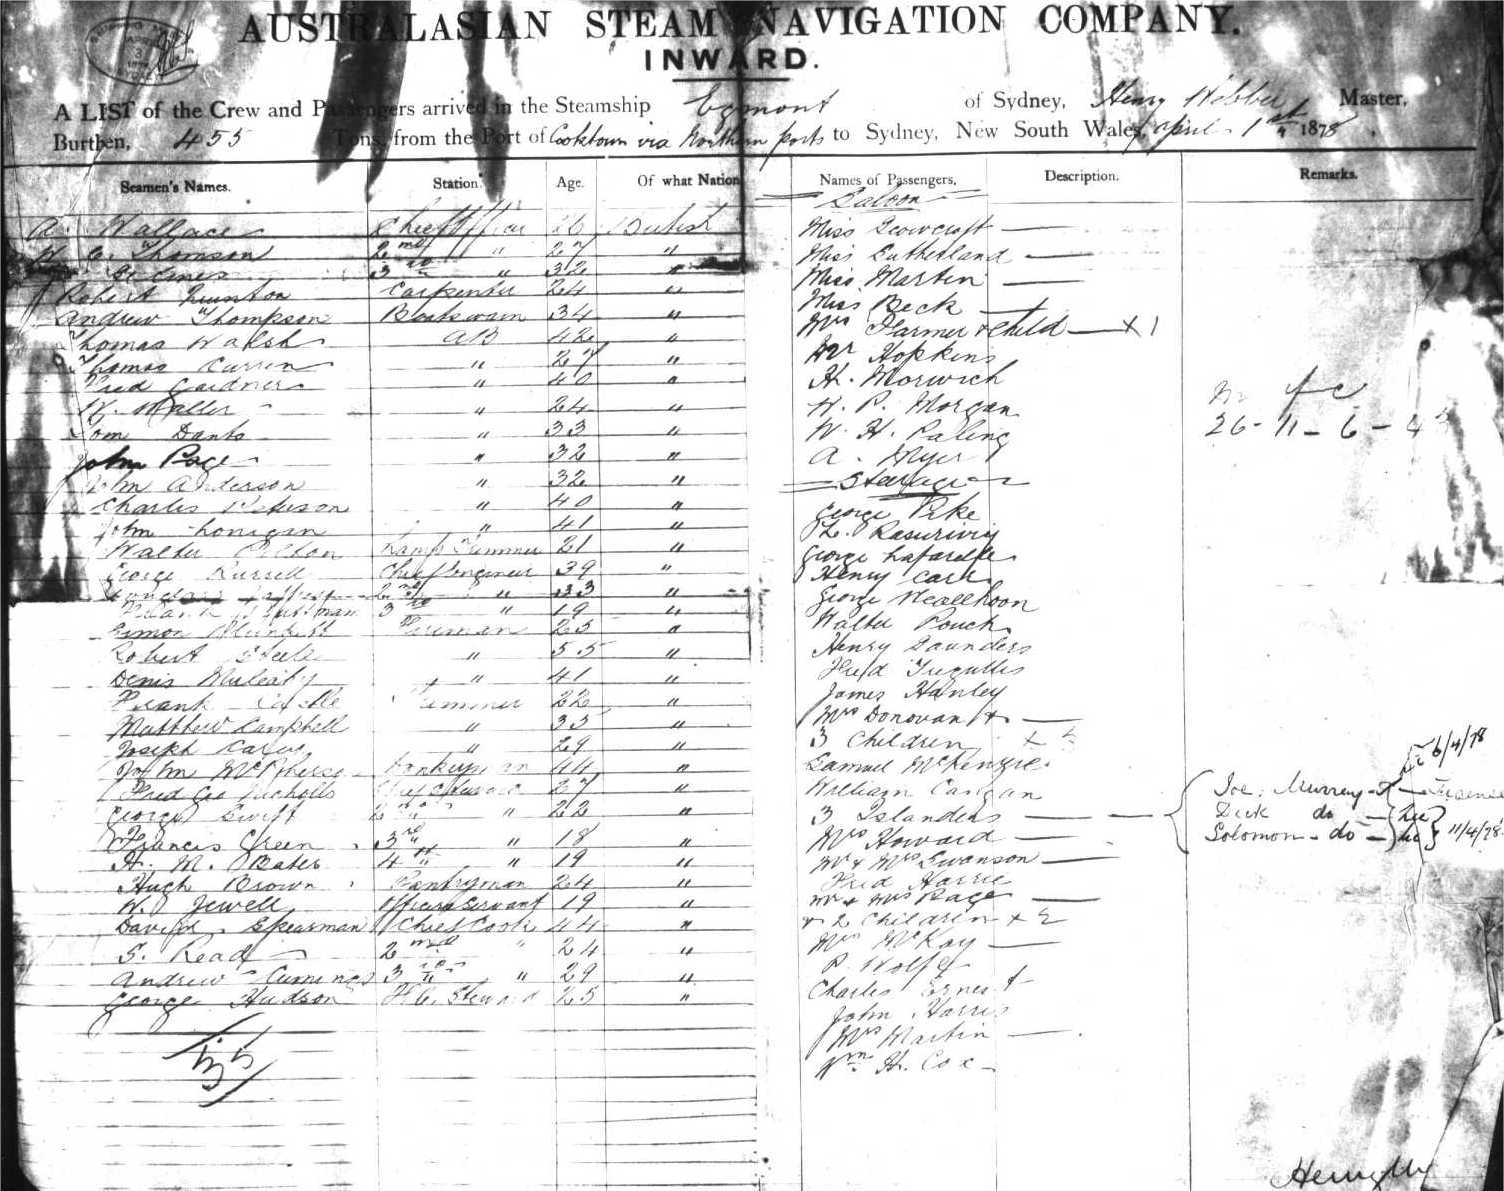 AUSTRALASIAN STEAM NAVIGATION COMPANY.
INWARD.
A LIST of the Crew and Passengers arrived in the Steamship Egmont of Sydney, Henry Webber Master,
Burthen, 455 Tons, from the Port of Cooktown via Northern ports to Sydney, New South Wales, April 1st 1878.
Seamen's Names. Station. Age. Of what Nation Names of Passengers, Description. Remarks.
Saloon
A. Wallace Chief Officer 26 British
W. C. Thomson 2nd " 27 "
3rd " 32 "
Robert Carpenter 24 "
Andrew Thompson Boatswain 34 "
Thomas Walsh AB 42 "
Thomas Curren " 27 "
Fred Gardner " 40 "
W. Waller " 24 "
Tom Danks " 33 "
John Page " 32 "
John Anderson " 32 "
Charles Peterson " 40 "
John Lonigan " 41 "
Walter Lamp Trimmer 21 "
George Russell Chief Engineer 39 "
2nd " 33 "
Frank 3rd " 19 "
Simon Plunkett Fireman 25 "
Robert Steele " 55 "
Denis Muleahy " 41 "
Frank Castle Trimmer 22 "
Matthew Campbell " 35 "
Joseph Carey " 29 "
John McPherson Donkeyman 44 "
Fred Geo Nicholls Chief Steward 27 "
George Swift 2nd " 22 "
Francis Green 3rd " 18 "
H. M. Bates 4th " 19 "
Hugh Brown Pantryman 24 "
W. Jewell Officers Servant 19 "
David Spearman Chief Cook 44 "
S. Read 2nd " 24 "
Andrew Cumings 3rd " 29 "
George Hudson F.C. Steward 25 "
35
Miss Scowcroft
Miss Sutherland
Miss Martin
Miss Beck
Mrs Farmer & Child x 1
Mr Hopkins
H. Morwich
W. P. Morgan
W. H. Paling
A. Myer
Steerage
George Pike
L.
George Lafarelle
Henry Carr
George
Walter Pouch
Henry Saunders
Fred
James Hanley
Mrs Donovan &
3 Children x 3
Samuel McKenzie
William Cangan
3 Islanders
Mrs Howard
Mr & Mrs Swanson
Fred Harris
Mr & Mrs Page
& 2 Children x 2
Mrs McKay
P. Wolfe
Charles Ernest
John Harris
Mrs Martin
Wm H. Cox
m f c
26 - 11 - 6 - 43
6/4/78
Joe Murray
Dick do
Solomon - do 11/4/78
Henry